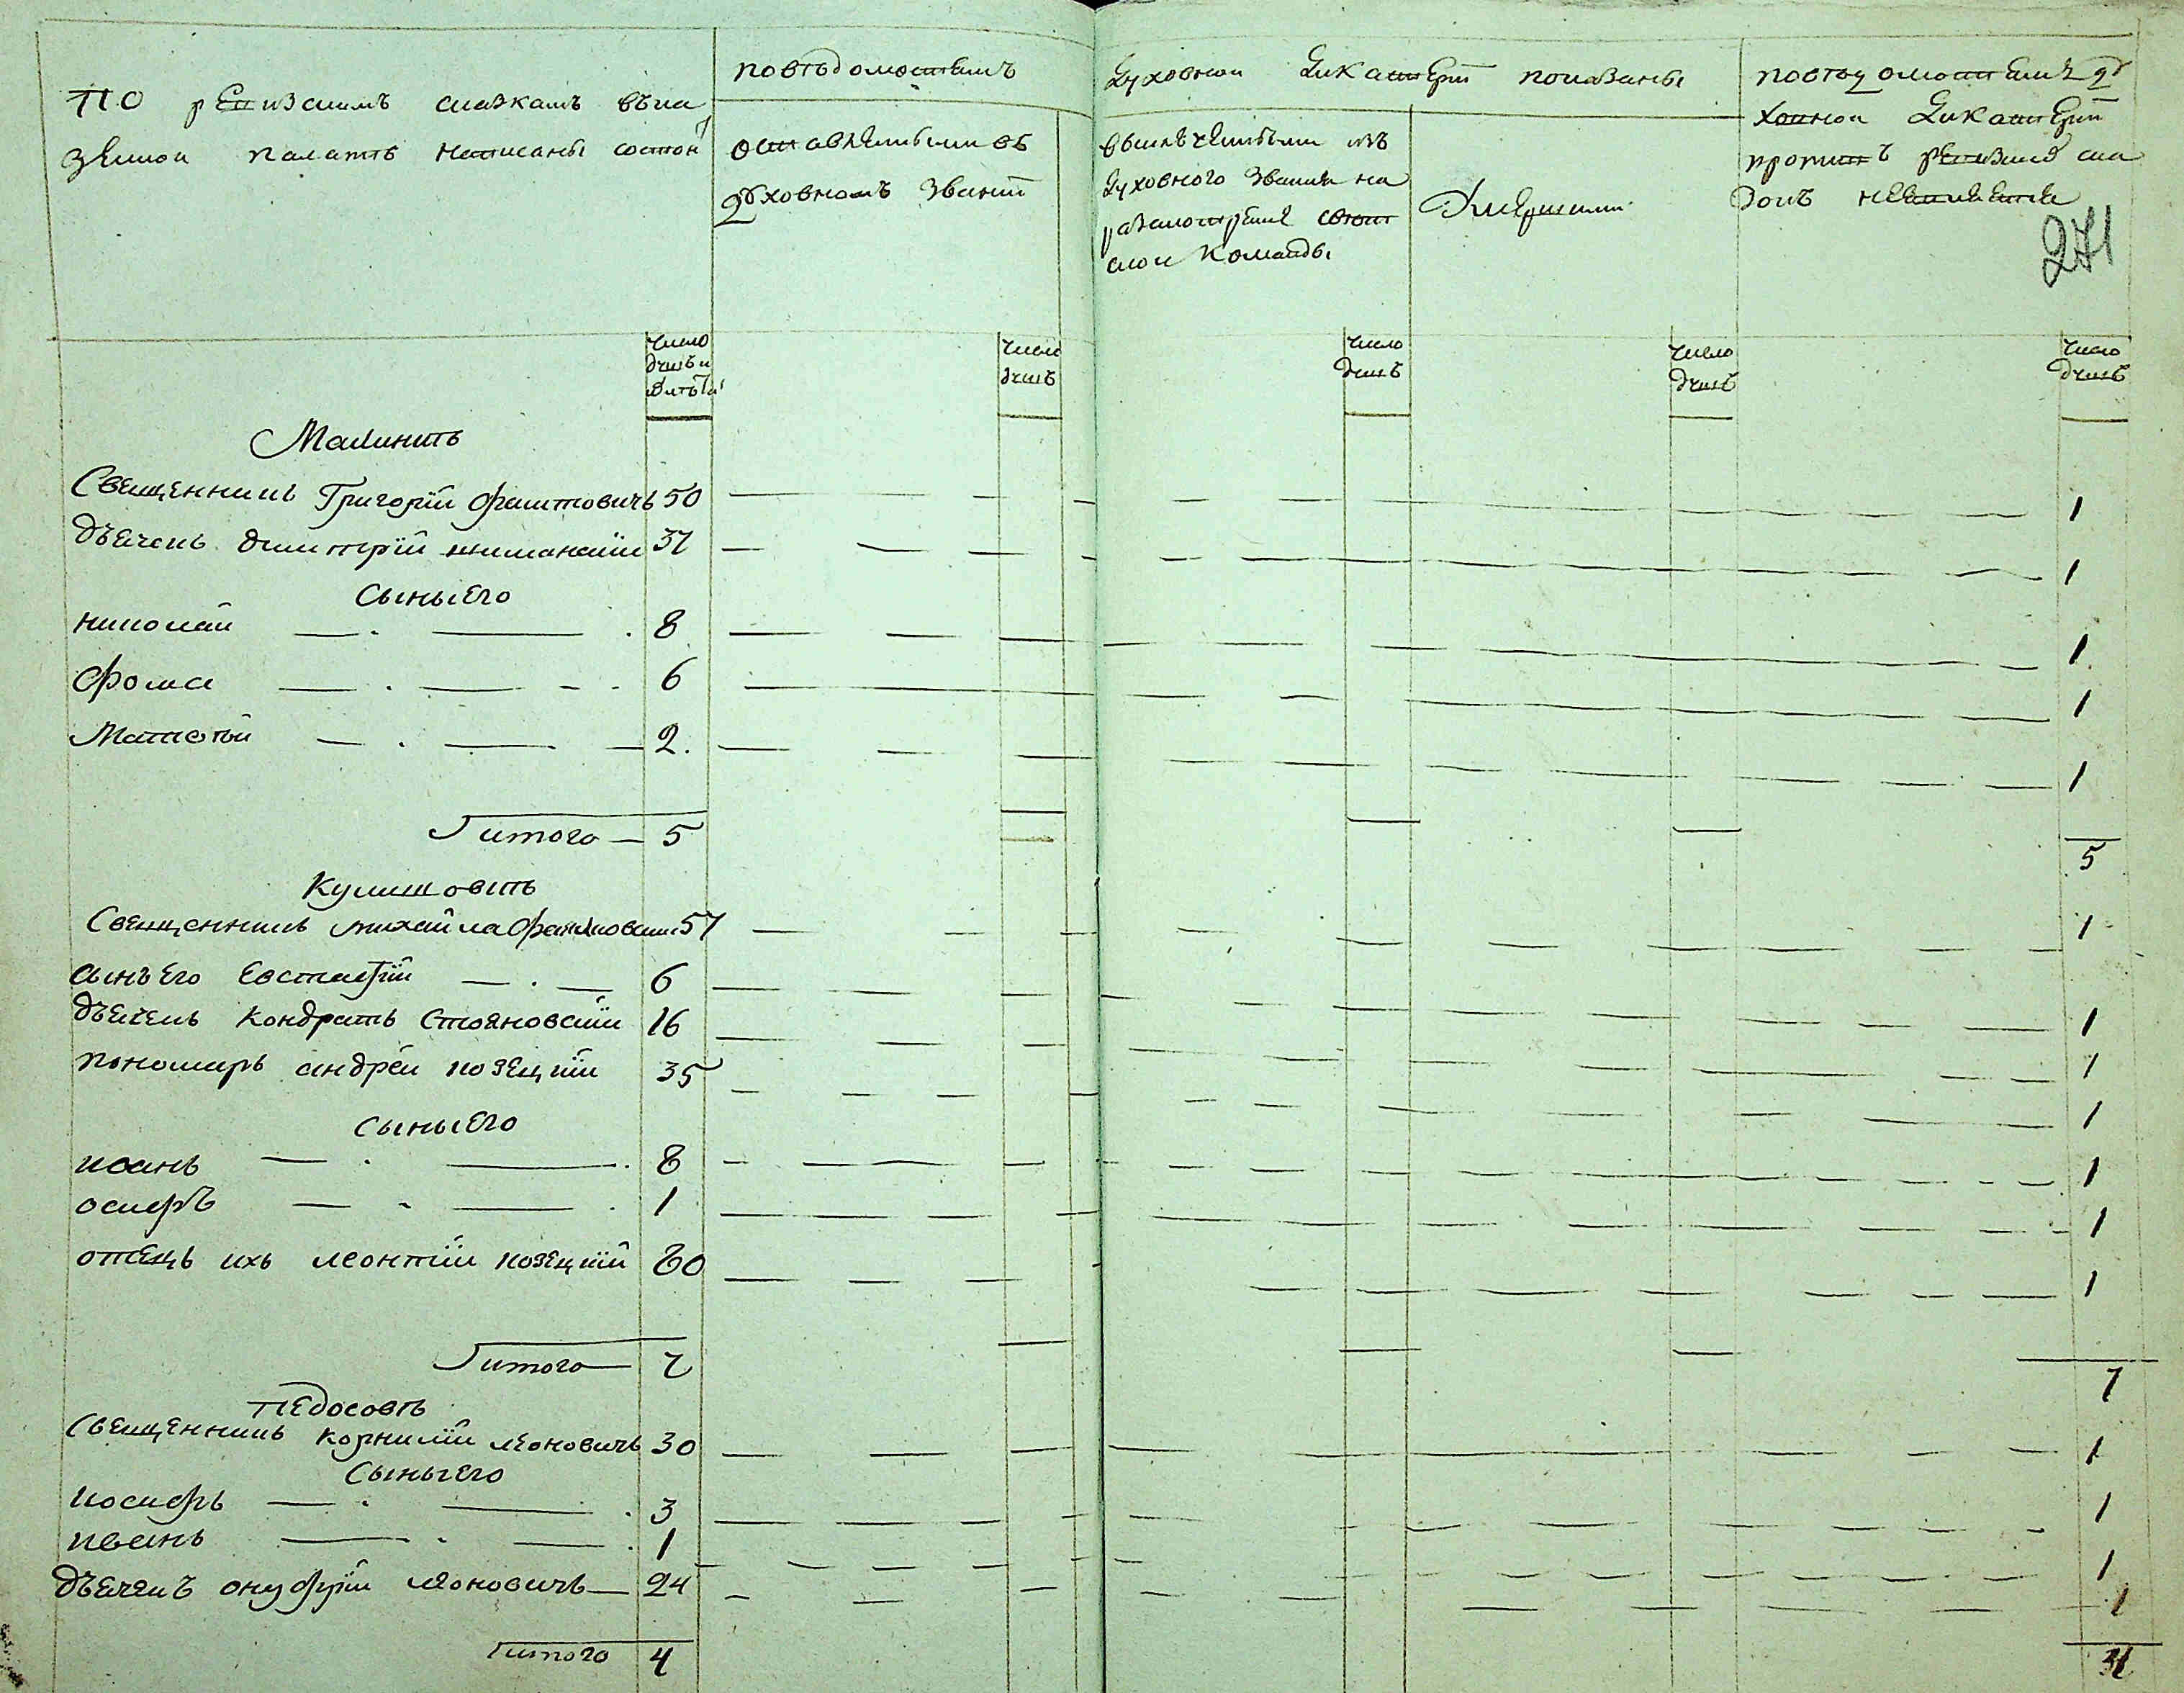 По ревизскимъ сказкамъ въ ка
зенной палатѣ написаны состоя
по вѣдомостямъ
оставленными въ
духовномъ званіи
духовной дикастеріи показаны
выключенными изъ
духовного званія на
разсмотреніе свѣт
ской команды
умершими
по вѣдомостямъ ду
ховной дикастеріи
противъ ревизскихъ ска
зокъ неявляется
271
число
душъ и
лѣтъ
число
душъ
число
душъ
число
душъ
число
душъ
Малинитъ
Свещенникъ Григорій 50 1
Дьячекъ Димитрій 37 1
Сыны его
Николай 8 1
Фома 6 1
Матвѣй 2. 1
итого 5 5
Кулишовтъ
Свещенникъ Михайла 57 1
Сынъ его Евстафій 6
Дьячекъ Кондратъ Стояновскій 16 1
Пономарь Андрей Козецкій 35 1
1
Сыны его
Иванъ 8 1
Осифъ 1 1
Отецъ ихъ Леонтій Козецкій 80 1
итого 7 7
Педосовъ
Свещенникъ Корнилій Леоновичъ 30 1
Сыны его
Иосифъ 3 1
Иванъ 1 1
Дьячекъ Онуфрій Леоновичъ 24 1
итого 4 4